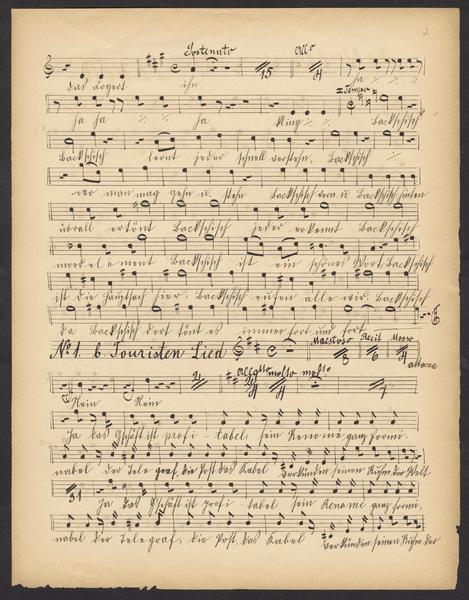 2
Sostenuto Allo
das ärgert ihn 15 4 ja
I Tempo
ja ja ja King Backschisch
Backschisch lernt jeder schnell verstehn, Backschisch
wo man mag gehn u. stehn Backschisch vorn u Backschisch hinten
überall ertönt Backschisch jeder erkennt Backschisch
mordelement Backschisch ist ein schönes Wort Backschisch
ist die Hauptsach hier. Backschisch rufen alle wir. Backschisch
da Backschisch dort tönt es immerfort und fort
No 1. b. Touristen Lied Maestoso 8 Recit 6 Moso 4
attacca
Allegtto molto molto
Nein Nein 2 4 4 7
Ja das Gschäft ist profi-tabel, sein Renomé ganz formi-
nabel der Telegraf, die Post das Kabel verkünden seinen Ruhm der Welt
31
Ja das Gschäft ist profi tabel sein Renomé ganz formi-
nabel der Telegraf, die Post, das Kabel verkünden seinen Ruhm der